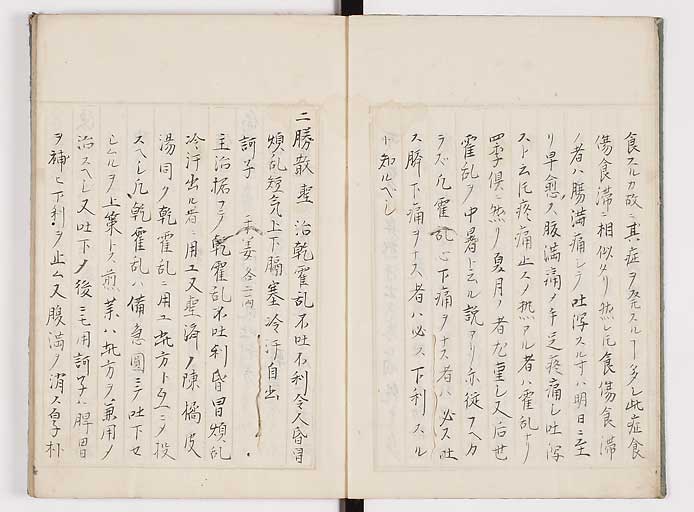 食スルカ故ニ其症ヲ発スルヿ多シ此症食
傷食滞ニ相似タリ然レ𪜈食傷食滞
ノ者ハ腸満痛シテ吐瀉スルキハ明日ニ至
リ早愈ス腹満痛メキ乏疼痛シ吐瀉
スト云𪜈疼痛止ス乄熱アル者ハ霍乱ナリ
四季倶ニ然リ夏月ノ者尤重シ又后世
霍乱ヲ中暑ト云ル説アリ亦従フヘカ
ラズ凡霍乱心下痛ヲナス者ハ必ス吐
ス臍下痛ヲナス者ハ必ス下利スル
ト知ルベシ
二勝散 聖 治乾霍乱不吐不利令人昏冒
煩乱短気上下膈塞冷汗自出
訶子 干姜各二両
主治拠フテ乾霍乱不吐利昏冒煩乱
冷汗出ル者ニ用ユ又聖済ノ陳橘皮
湯同ク乾霍乱ニ用ユ此方ト互ニヲ投
スヘシ凡乾霍乱ハ備急圓ニテ吐下セ
シムルヲ上策トス煎薬ハ此方ヲ兼用メ
治スヘシ又吐下ノ後ニモ用訶子ハ脾胃
ヲ補ヒ下利ヲ止ム又腹満ノ消ス皂子朴